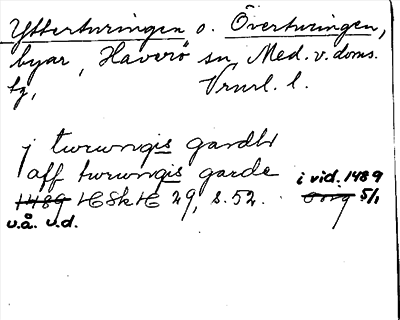 Ytterturingen o. Överturingen,
byar, Haverö sn, Med. v. doms.
tg, Vrml. l.
j turungis gardhr
aff turungis garde i vid. 1489
1489 HSkH 29, s. 52. Orig 5/1
u.å. u.d.